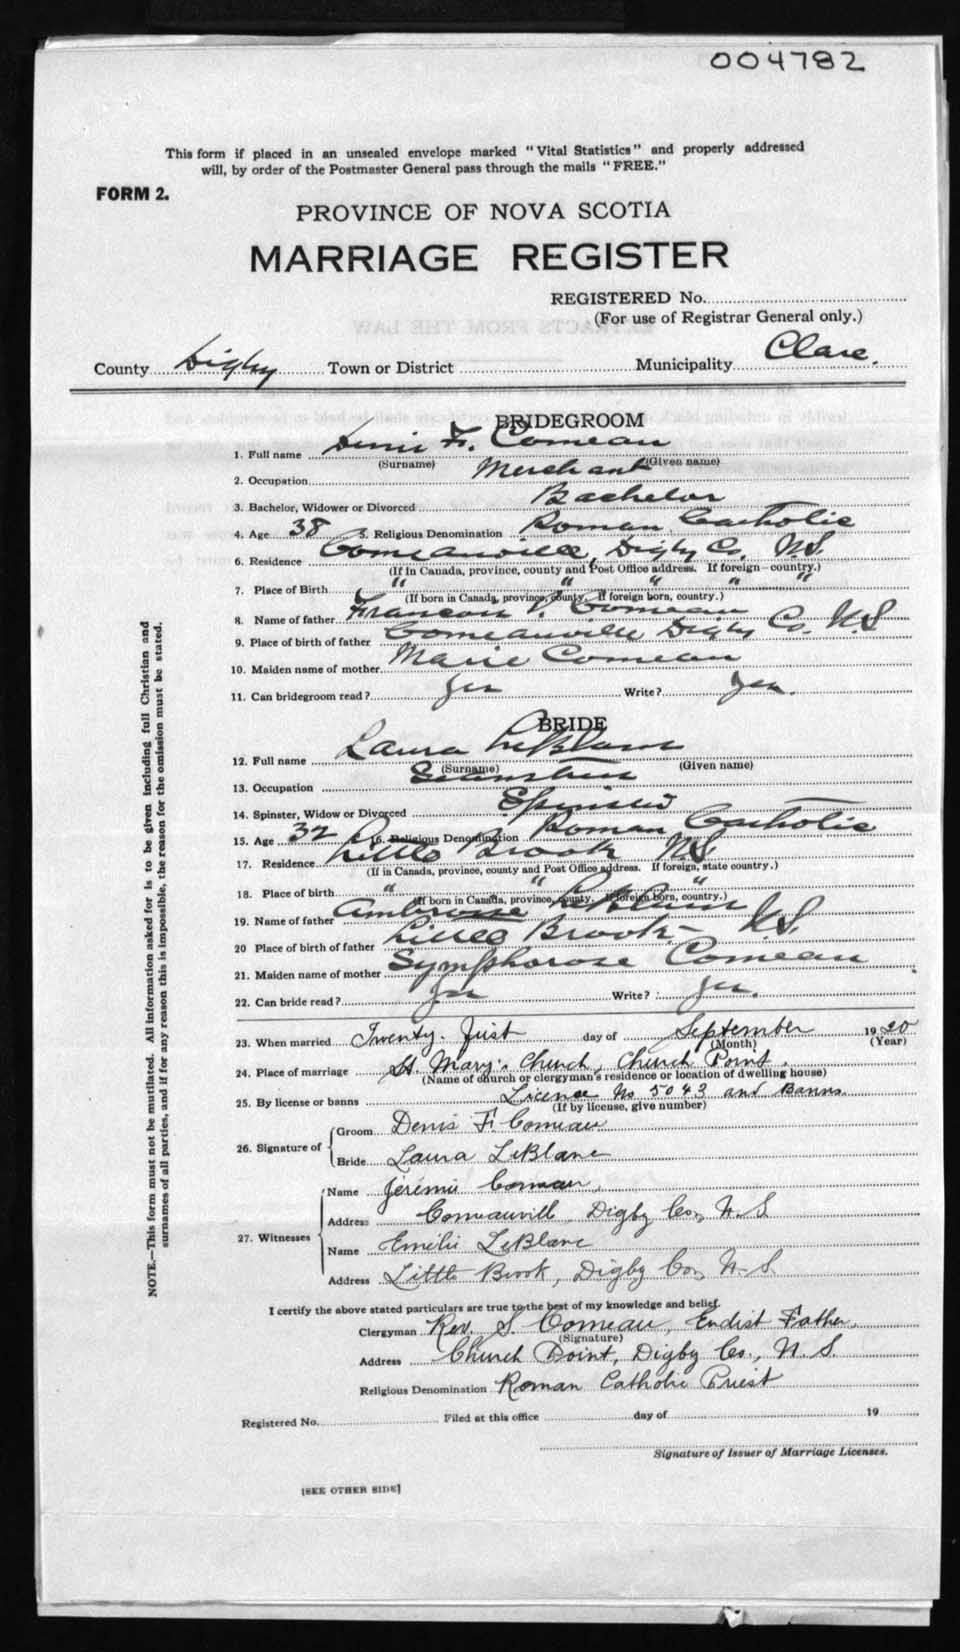 004782
This form if placed in an unsealed envelope marked "Vital Statistics" and properly addressed
will, by order of the Postmaster General pass through the mails "FREE."
FORM 2.
PROVINCE OF NOVA SCOTIA
MARRIAGE REGISTER
REGISTERED No.
(For use of Registrar General only.)
County Digby Town or District Municipality Clare.
BRIDEGROOM
1. Full name Denis F. Comeau
(Surname) (Given name)
2. Occupation Merchant
3. Bachelor, Widower or Divorced Bachelor
4. Age 38 5. Religious Denomination Roman Catholic
6. Residence Comeauville, Digby Co. N.S.
(If in Canada, province, county and Post Office address. If foreign—country.)
7. Place of Birth " " " " "
(If born in Canada, province, county. If foreign born, country.)
8. Name of father Francois V. Comeau
9. Place of birth of father Comeauville Digby Co. N.S
10. Maiden name of mother Marie Comeau
11. Can bridegroom read? Yes Write? Yes.
BRIDE
12. Full name Laura LeBlanc
(Surname) (Given name)
13. Occupation
14. Spinster, Widow or Divorced Spinster
15. Age 32 16. Religious Denomination Roman Catholic
17. Residence Little Brook N.S.
(If in Canada, province, county and Post Office address. If foreign, state country.)
18. Place of birth " " "
(If born in Canada, province, county. If foreign born, country.)
19. Name of father Ambrose LeBlanc
20 Place of birth of father Little Brook - N.S.
21. Maiden name of mother Symphorose Comeau
22. Can bride read? Yes Write? Yes.
23. When married Twenty-first day of September 1920
(Month) (Year)
24. Place of marriage St. Mary's Church, Church Point.
(Name of church or clergyman's residence or location of dwelling house)
25. By license or banns License No 5043 and Banns.
(If by license, give number)
26. Signature of
Groom Denis F. Comeau
Bride Laura LeBlanc
27. Witnesses
Name Jérémie Comeau,
Address Comeauville, Digby Co., N.S.
Name Emélie LeBlanc
Address Little Brook, Digby Co., N.S.
I certify the above stated particulars are true to the best of my knowledge and belief.
Clergyman Rev. S. Comeau, Eudist Father.
(Signature)
Address Church Point, Digby Co., N.S.
Religious Denomination Roman Catholic Priest
Registered No. Filed at this office day of 19
Signature of Issuer of Marriage Licenses.
[SEE OTHER SIDE]
NOTE.—This form must not be mutilated. All information asked for is to be given including full Christian and
surnames of all parties, and if for any reason this is impossible, the reason for the omission must be stated.